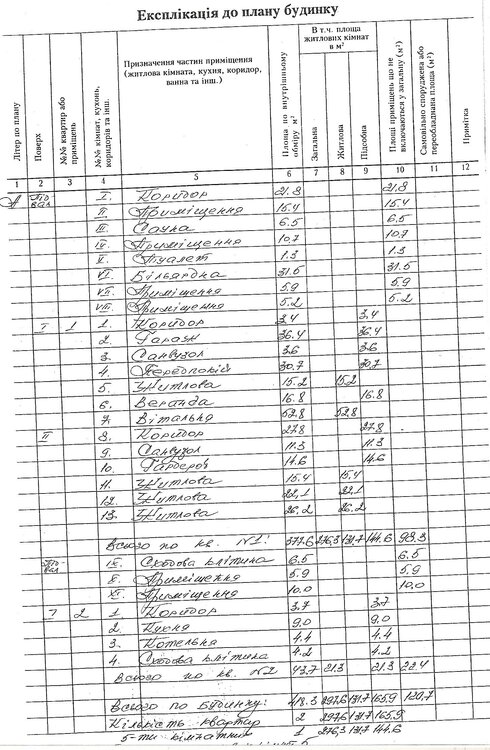 Експлікація до плану будинку
Літер по плану
Поверх
№№ квартир або приміщень
№№ кімнат, кухонь, коридорів та інш.
Призначення частин приміщення (житлова кімната, кухня, коридор, ванна та інш.)
Площа по внутрішньому обміру м²
В т.ч. площа житлових кімнат в м²
Загальна
Житлова
Підсобна
Площі приміщень що не включаються у загальну (м²)
Самовільно споруджена або переобладнана площа (м²)
Примітка
1 2 3 4 5 6 7 8 9 10 11 12
А Підвал I. Коридор 21.8 21.8
II. Приміщення 15.4 15.4
III. Сауна 6.5 6.5
IV. Приміщення 10.7 10.7
V. Туалет 1.3 1.3
VI. Більярдна 31.5 31.5
VII. Приміщення 5.9 5.9
VIII. Приміщення 5.2 5.2
I 1 1. Коридор 3,4 3,4
2. Гараж 36.4 36.4
3. Санвузол 3.6 3.6
4. Передпокій 30,7 30,7
5. Житлова 15.2 15.2
6. Веранда 16.8 16.8
7. Вітальня 52,8 52,8
II 8. Коридор 27.8 27.8
9. Санвузол 11.3 11.3
10. Гардероб 14.6 14.6
11. Житлова 15.4 15.4
12. Житлова 22,1 22,1
13. Житлова 26.2 26.2
Всього по кв. №1: 276,3 131,7 144.6 98.3
Підвал IX. Сходова клітина 6.5 6.5
X. Приміщення 5.9 5.9
XI. Приміщення 10.0 10.0
1 2 1 Коридор 3.7 3.7
2. Кухня 9.0 9.0
3. Котельня 4.4 4.4
4. Сходова клітина 4.2 4.2
Всього по кв. №2 43.7 21.3 21.3 22.4
Всього по будинку: 418.3 297,6 131,7 165,9 120,7
Кількість квартир 2 297,6 131,7 165,9
5-ти кімнатних 1 276,3 131,7 144.6